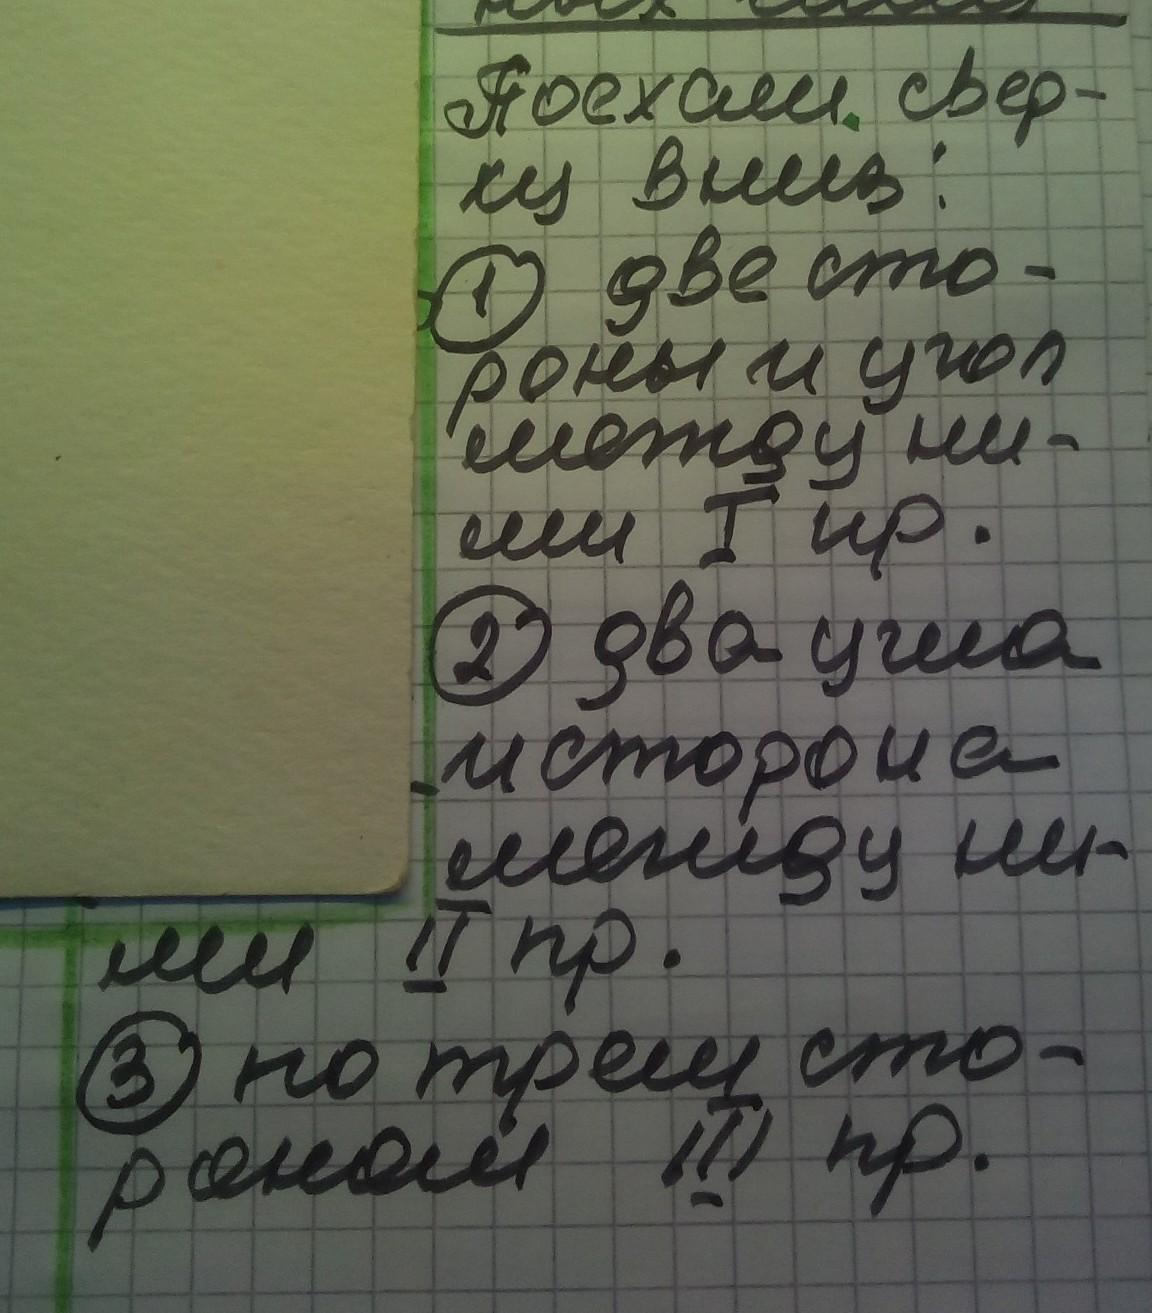 Поехали свер-
ху вниз:
① две сто-
роны и угол
между ни-
ми I пр.
② два угла
и сторона
между ни-
ми II пр.
③ по трем сто-
ронам III пр.